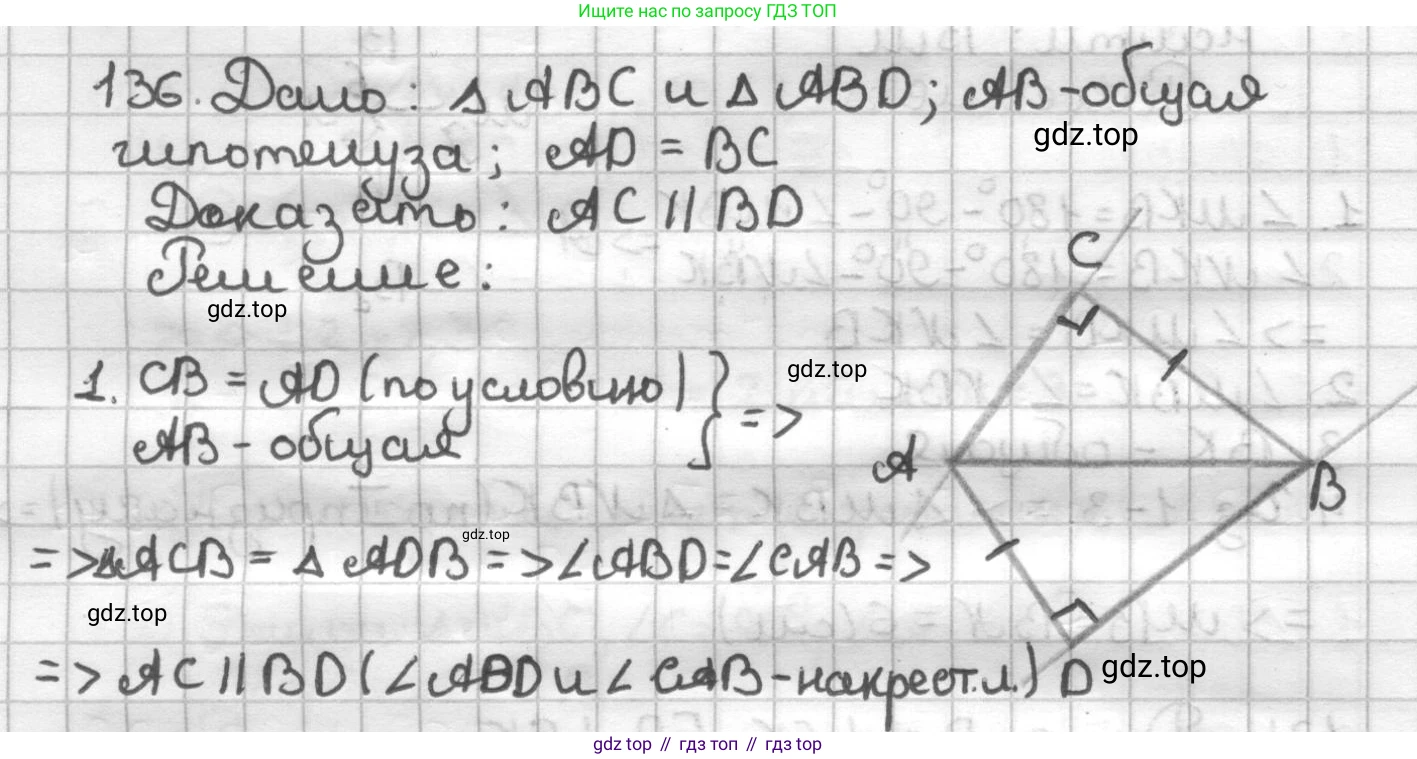 Ищите нас по запросу ГДЗ ТОП
136. Дано: Δ ABC и Δ ABD; AB - общая
gdz.top
гипотенуза; AD = BC
Доказать: AC || BD
Решение:
gdz.top
C
1. CB = AD (по условию) } =>
gdz.top
AB - общая
A
B
=> Δ ACB = Δ ADB => ∠ABD = ∠CAB =>
gdz.top
gdz.top
=> AC || BD (∠ABD и ∠CAB - накрест.л.)
D
gdz.top
gdz top // гдз топ // gdz top